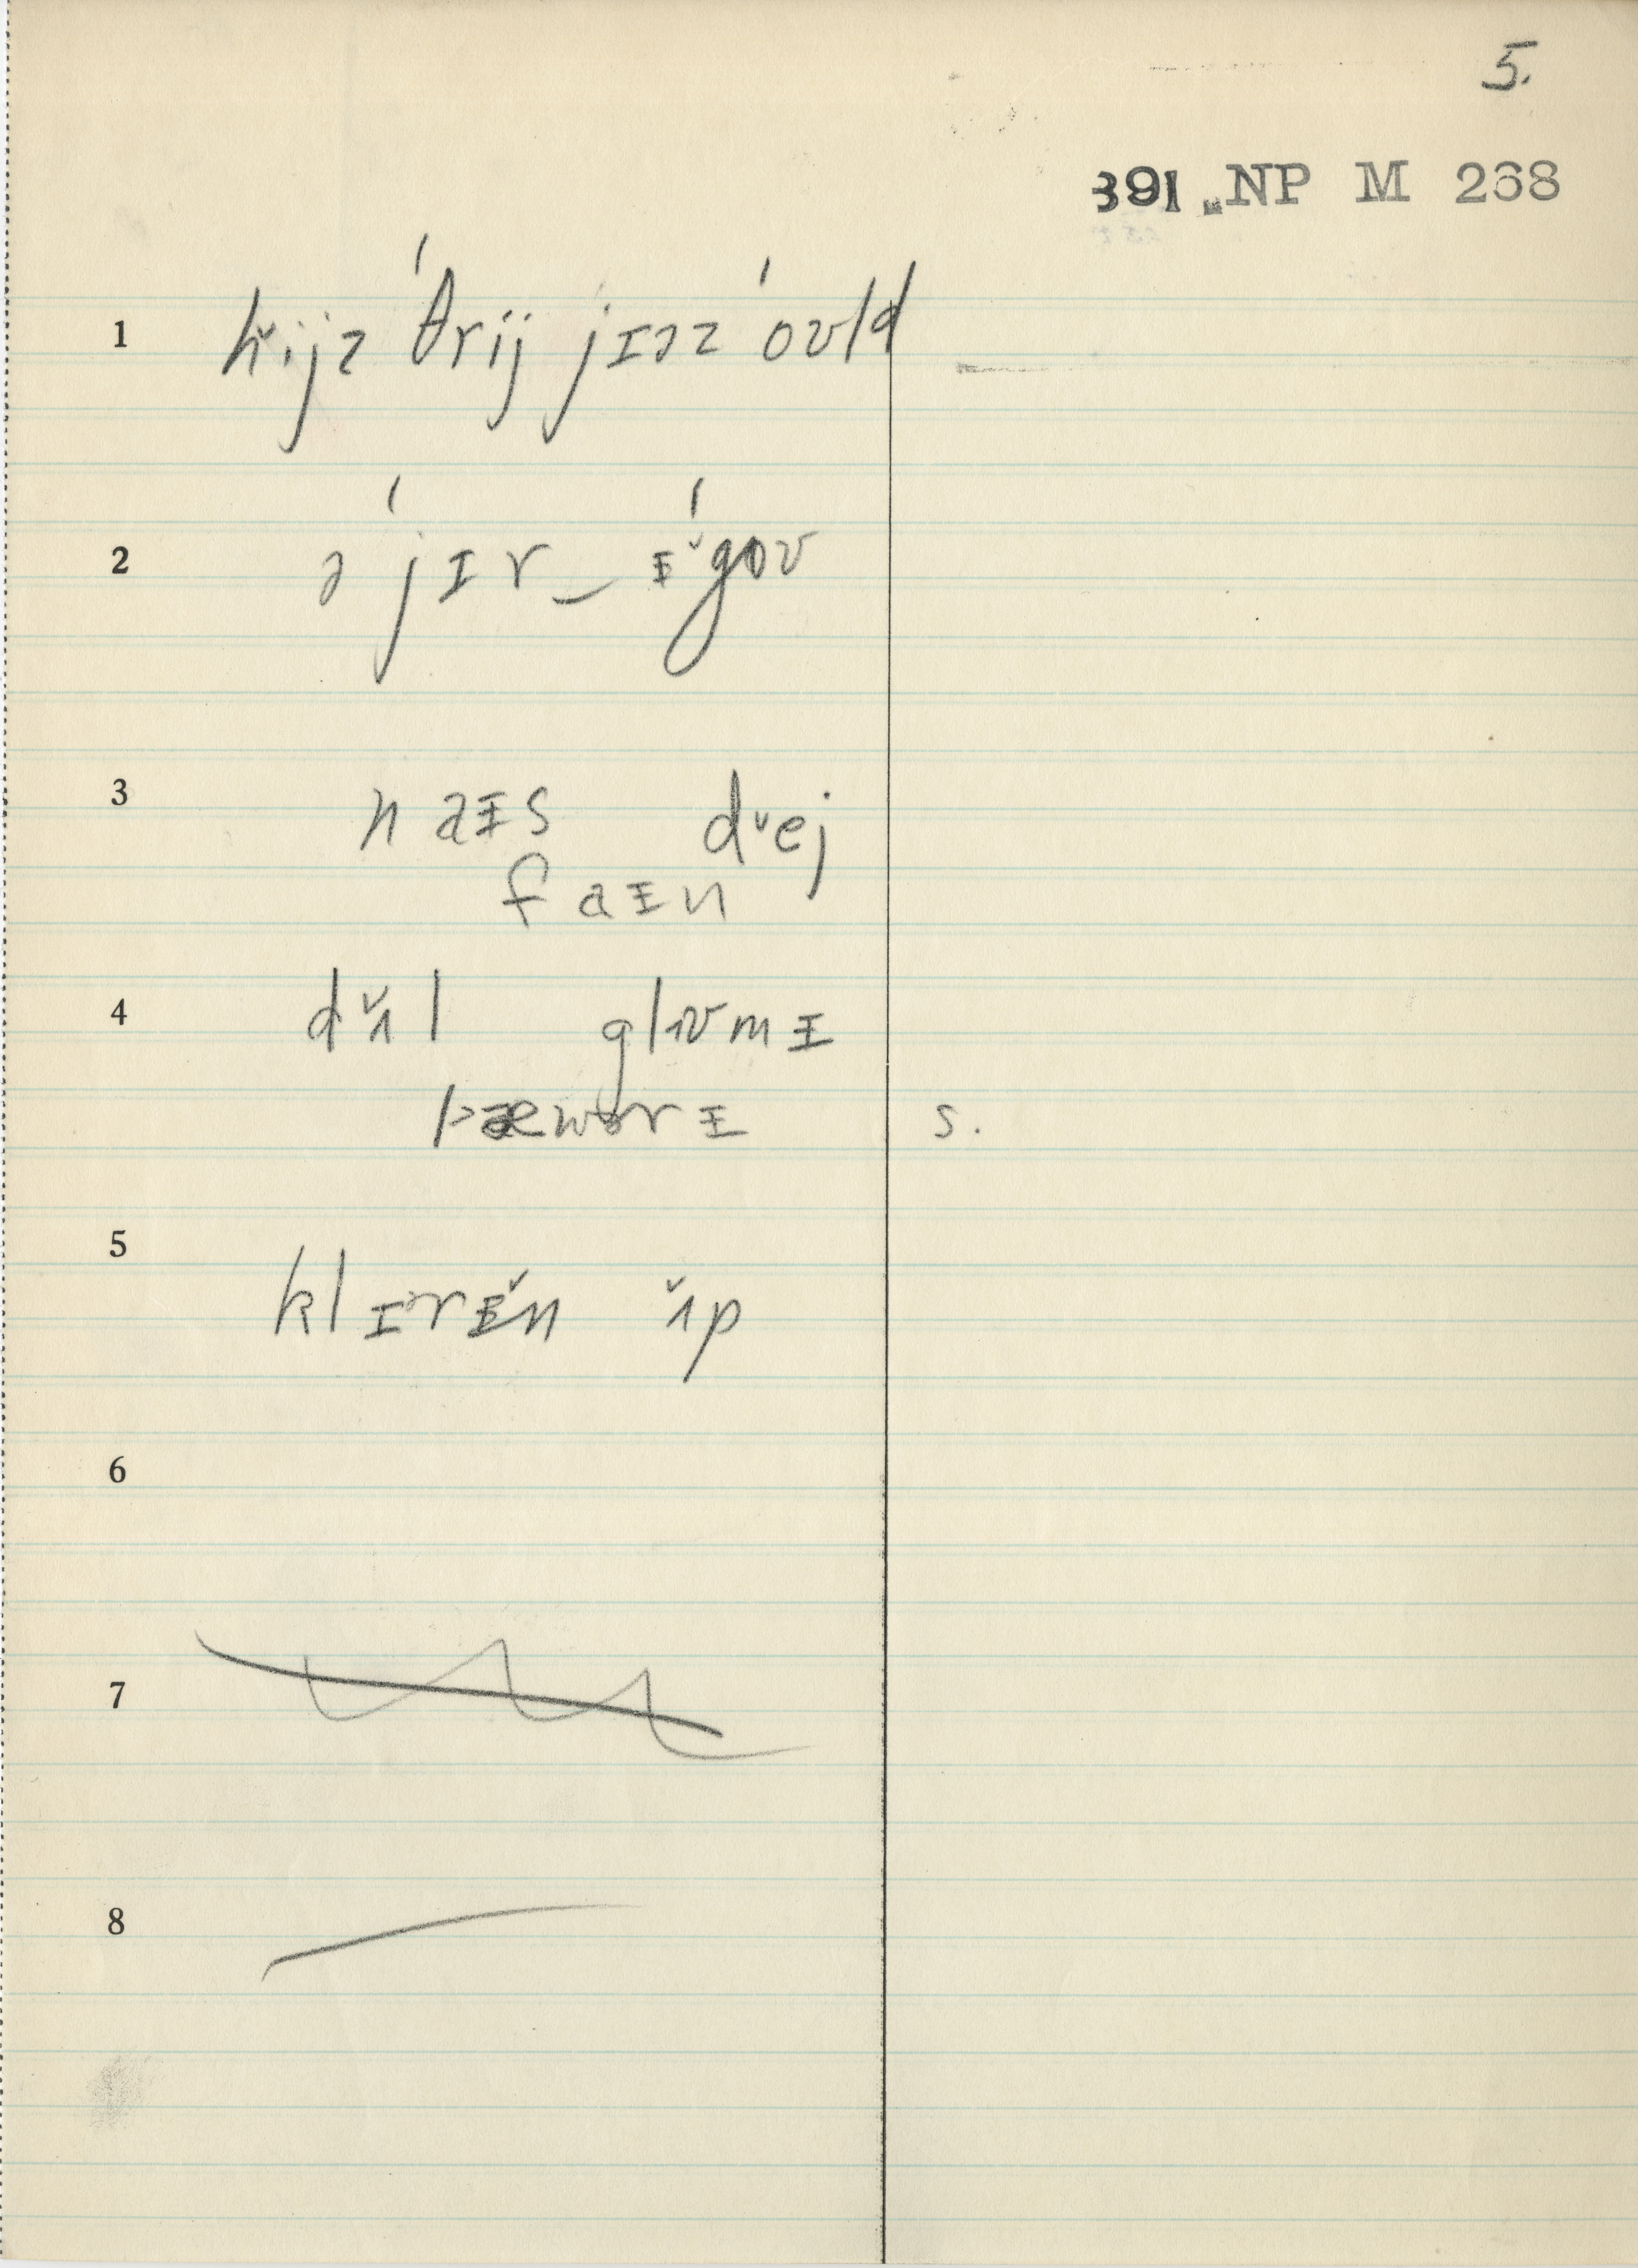 5.
391 NP M 268
1 hɪ̌jz ˈθrij jɪəz ˈoʊld
2 ə ˈjɪr_ ᵻ̌ˈgoʊ
3 naᵻs dě̬j
faᵻn
4 dʌ̌l glʊmɪ
lawərɪ s.
5 klɪrᵻ̌n ʌ̌p
6
7
8